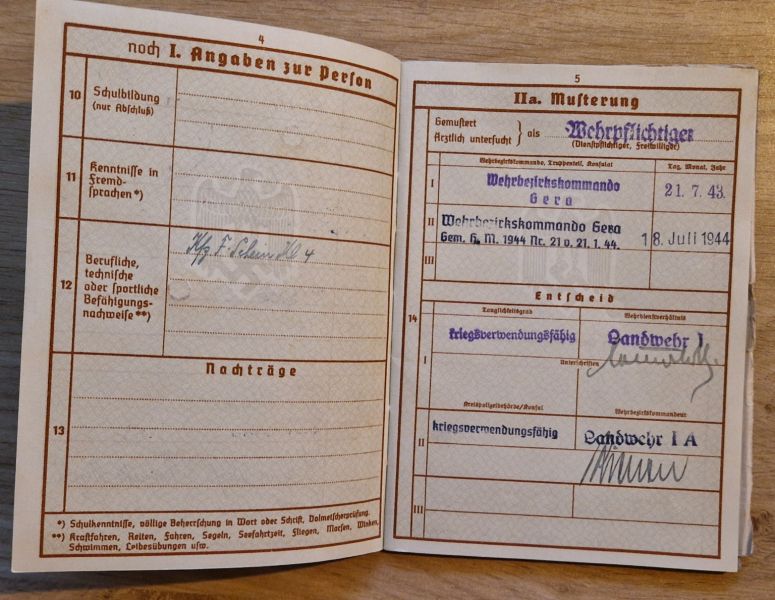 4
noch I. Angaben zur Person
10 Schulbildung
(nur Abschluß)
11 Kenntnisse in
Fremd-
sprachen*)
12 Berufliche,
technische
oder sportliche
Befähigungs-
nachweise**)
Kfz. F. Schein Kl 4
Nachträge
13
*) Schulkenntnisse, völlige Beherrschung in Wort oder Schrift, Dolmetscherprüfung.
**) Kraftfahren, Reiten, Fahren, Segeln, Seefahrtzeit, Fliegen, Morsen, Winken,
Schwimmen, Leibesübungen usw.
5
IIa. Musterung
Gemustert
Ärztlich untersucht } als Wehrpflichtiger
(Dienstpflichtiger, Freiwilliger)
Wehrbezirkskommando, Truppenteil, Konsulat
Tag, Monat, Jahr
I Wehrbezirkskommando
Gera
21.7.43.
II Wehrbezirkskommando Gera
Gem. H. M. 1944 Nr. 21 v. 21.1.44.
18. Juli 1944
III
Entscheid
14
Tauglichkeitsgrad
Wehrdienstverhältnis
kriegsverwendungsfähig
Landwehr I
I
Unterschriften
Kreispolizeibehörde/Konsul
Wehrbezirkskommandeur
II kriegsverwendungsfähig
Landwehr I A
III